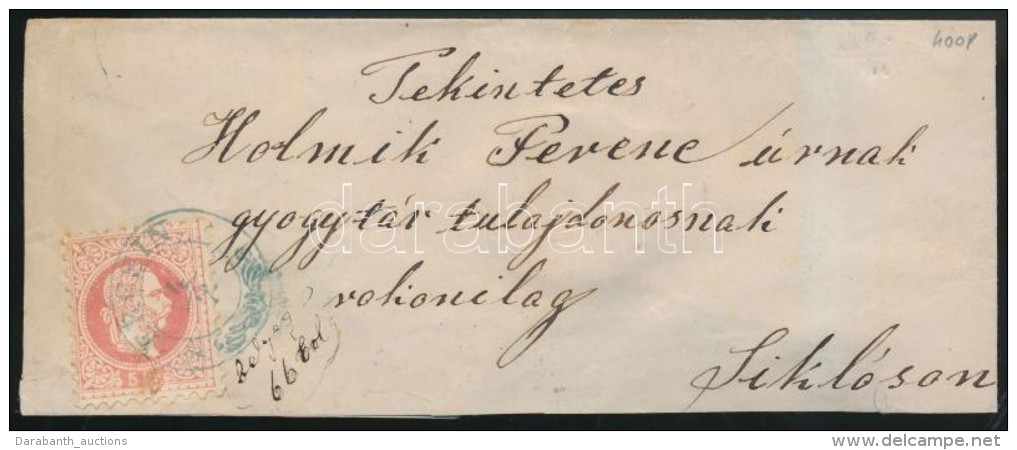 4001
Tekintetes
Holmik Ferenc úrnak
gyogytár tulajdonosnak
rokonilag
Siklóson
66
5
darabanth
Darabanth_auctions
www.delcampe.net